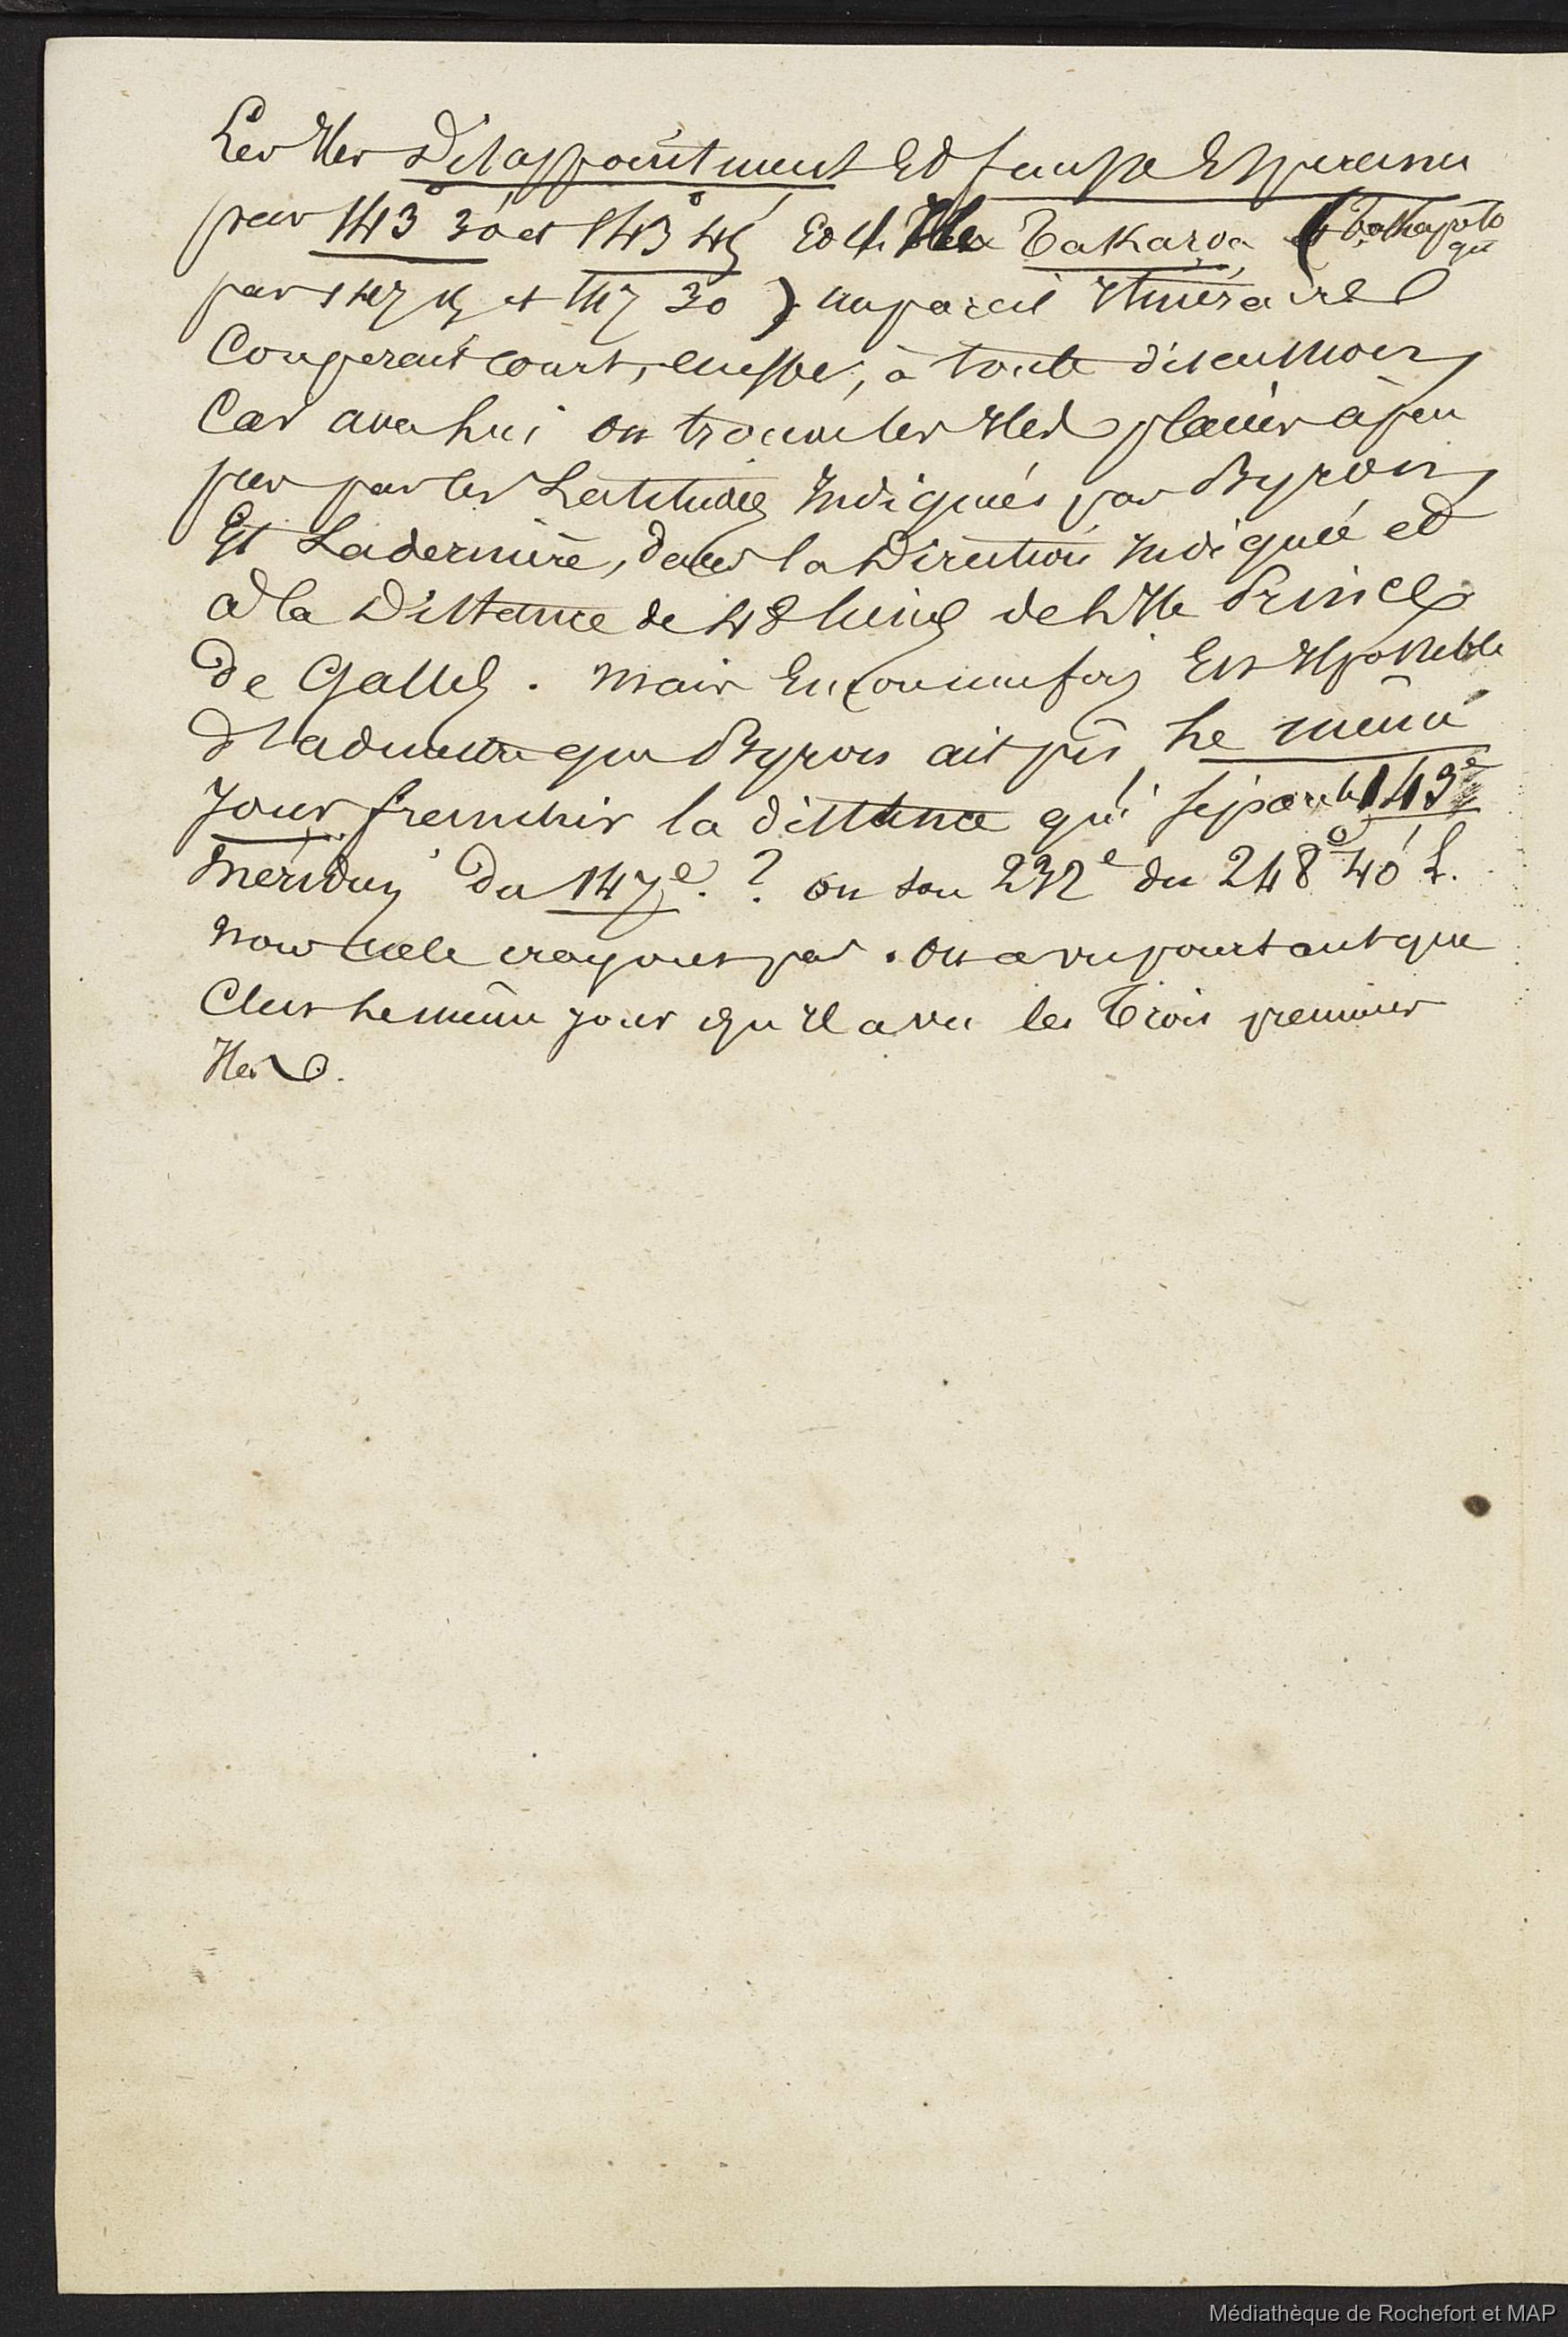 Les Iles Disappointment et fausse Esperance
par 143° 30' et 143° 45' et les Iles Takaroa (Takapoto
qui
par 147 15 et 147 30) un pareil Itinéraire
Couperait court, aussi, à toute discussion,
Car avec lui on trouve les Iles placées à peu
près par les Latitudes Indiquées par Byron,
Et La dernière, dans la Direction Indiquée et
à la Distance de 48 lieues de l'Ile Prince
De Galles. Mais Encore une fois Est Il possible
d'admettre que Byron ait pu le même
Jour franchir la distance qui sépare le 143e
Méridien du 147e. ? on son 232e du 248° 40' L.
Nous ne le croyons pas. On a vu pourtant que
C'est le même jour qu'Il a vu les Trois premières
Iles.
Médiathèque de Rochefort et MAP